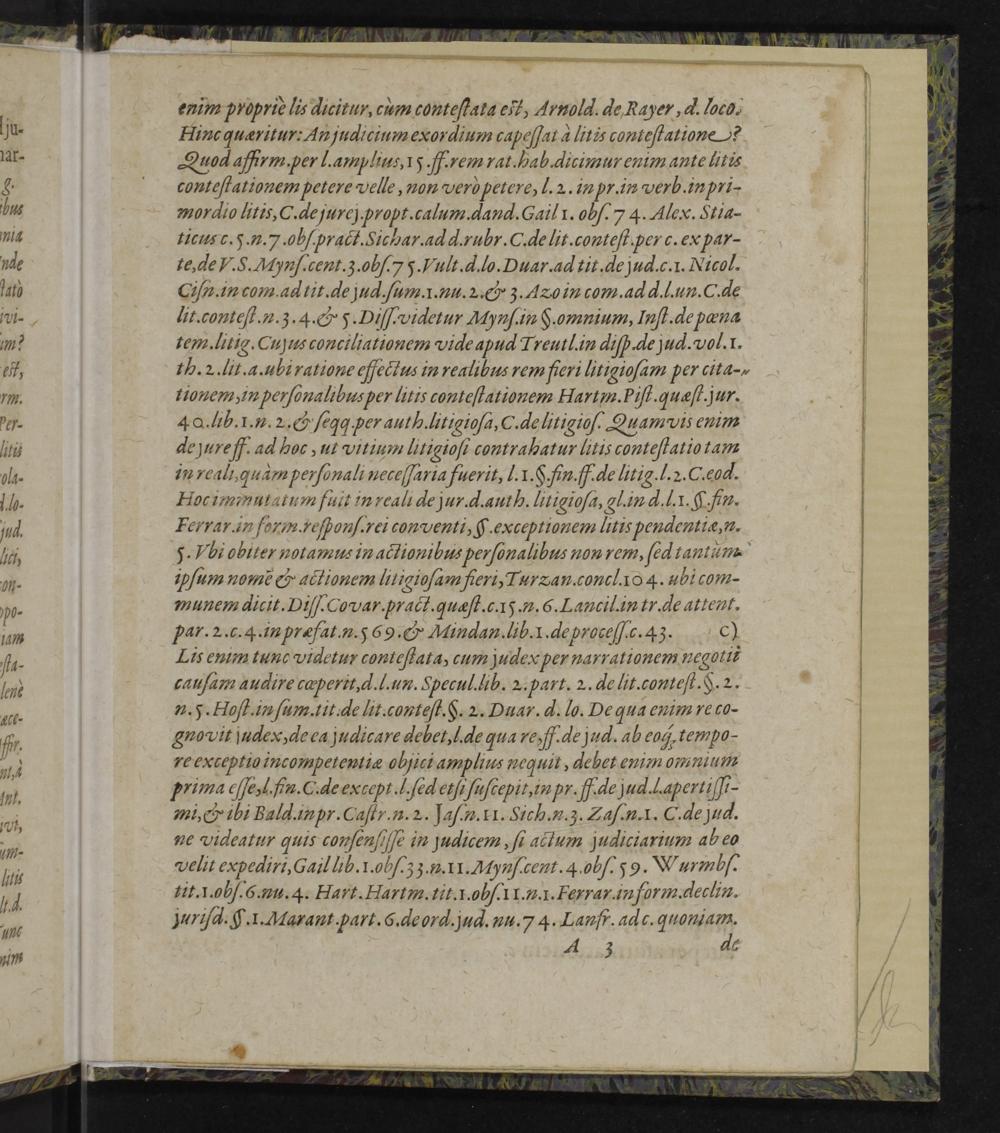 enim propriè lis dicitur, cùm contestata est, Arnold. de Rayer, d. loco.
Hinc quæritur: An judicium exordium capessat à litis contestatione?
Quod affirm. per l. amplius, 15. ff. rem rat. hab. dicimur enim ante litis
contestationem petere velle, non verò petere, l. 2. in pr. in verb. in pri-
mordio litis, C. de jurej. propt. calum. dand. Gail 1. obs. 74. Alex. Stia-
ticus c. 5. n. 7. obs. pract. Sichar. ad d. rubr. C. de lit. contest. per c. ex par-
te, de V. S. Myns. cent. 3. obs. 75. Vult. d. lo. Duar. ad tit. de jud. c. 1. Nicol.
Cisn. in com. ad tit. de jud. sum. 1. nu. 2. & 3. Azo in com. ad d. l. un. C. de
lit. contest. n. 3. 4. & 5. Diss. videtur Myns. in §. omnium, Inst. de pœna
tem. litig. Cujus conciliationem vide apud Treutl. in disp. de jud. vol. 1.
th. 2. lit. a. ubi ratione effectus in realibus rem fieri litigiosam per cita-
tionem, in personalibus per litis contestationem Hartm. Pist. quæst. jur.
40. lib. 1. n. 2. & seqq. per auth. litigiosa, C. de litigios. Quamvis enim
de jure ff. ad hoc, ut vitium litigiosi contrahatur litis contestatio tam
in reali, quàm personali necessaria fuerit, l. 1. §. fin. ff. de litig. l. 2. C. eod.
Hoc immutatum fuit in reali de jur. d. auth. litigiosa, gl. in d. l. 1. §. fin.
Ferrar. in form. respons. rei conventi, §. exceptionem litis pendentiæ, n.
5. Vbi obiter notamus in actionibus personalibus non rem, sed tantùm
ipsum nomē & actionem litigiosam fieri, Turzan. concl. 104. ubi com-
munem dicit. Diss. Covar. pract. quæst. c. 15. n. 6. Lancil. in tr. de attent.
par. 2. c. 4. in præfat. n. 569. & Mindan. lib. 1. de process. c. 43. c)
Lis enim tunc videtur contestata, cum judex per narrationem negotii
causam audire cœperit, d. l. un. Specul. lib. 2. part. 2. de lit. contest. §. 2.
n. 5. Host. in sum. tit. de lit. contest. §. 2. Duar. d. lo. De qua enim re co-
gnovit judex, de ea judicare debet, l. de qua re, ff. de jud. ab eoq́; tempo-
re exceptio incompetentiæ objici amplius nequit, debet enim omnium
prima esse, l. fin. C. de except. l. sed etsi susceperit, in pr. ff. de jud. l. apertissi-
mi, & ibi Bald. in pr. Castr. n. 2. Jas. n. 11. Sich. n. 3. Zas. n. 1. C. de jud.
ne videatur quis consensisse in judicem, si actum judiciarium ab eo
velit expediri, Gail lib. 1. obs. 33. n. 11. Myns. cent. 4. obs. 59. Wurmbs.
tit. 1. obs. 6. nu. 4. Hart. Hartm. tit. 1. obs. 11. n. 1. Ferrar. in form. declin.
jurisd. §. 1. Marant. part. 6. de ord. jud. nu. 74. Lanfr. ad c. quoniam.
A 3 de